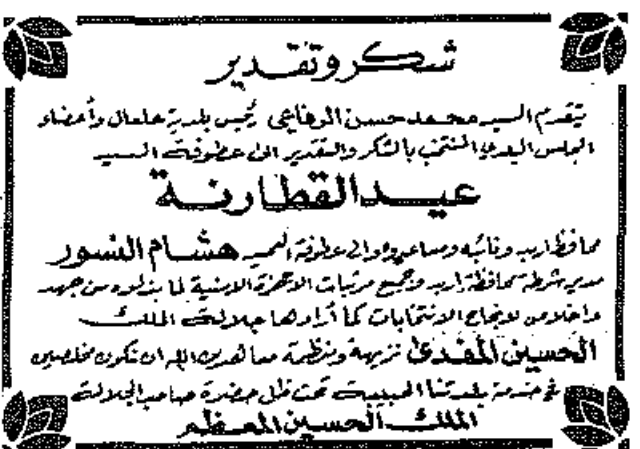 شكر وتقدير
يتقدم السيد محمد حسن الرفاعي رئيس بلدية علعال وأعضاء
المجلس البلدي المنتخب بالشكر والتقدير الى عطوفة السيد
عيد القطارنة
محافظ اربد ونائبه ومساعديه والى عطوفة العميد هشام النسور
مدير شرطة محافظة اربد وجميع مرتبات الاجهزة الامنية لما بذلوه من جهد
واخلاص لانجاح الانتخابات كما أرادها جلالة الملك
الحسين المفدى نزيهة ونظيفة معاهدين الله ان نكون مخلصين
في خدمة بلدتنا الحبيبة تحت ظل حضرة صاحب الجلالة
الملك الحسين المعظم